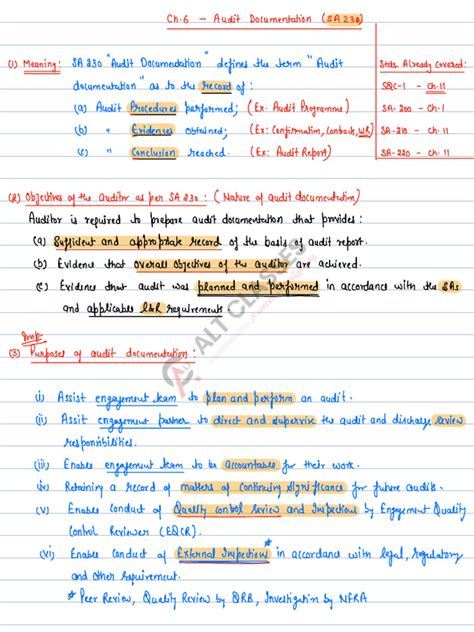 Ch.6 - Audit Documentation (SA 230)
(1) Meaning: SA 230 "Audit Documentation" defines the term "Audit
documentation" as to the record of:
(a) Audit Procedures performed; (Ex: Audit Programme)
(b) " Evidences obtained; (Ex: Confirmation, Contracts, WR)
(c) " Conclusion reached. (Ex: Audit Report)
Stds. Already Covered:
SQC-1 - Ch.11
SA-200 - Ch.1
SA-210 - Ch.11
SA-220 - Ch.11
(2) Objectives of the Auditor as per SA 230: (Nature of audit documentation)
Auditor is required to prepare audit documentation that provides:
(a) Sufficient and appropriate record of the basis of audit report.
(b) Evidence that overall objectives of the auditor are achieved.
(c) Evidence that audit was planned and performed in accordance with the SAs
and applicable L&R requirements.
ALT CLASSES
Imp.
(3) Purposes of audit documentation:
(i) Assist engagement team to plan and perform an audit.
(ii) Assit engagement partner to direct and supervise the audit and discharge review
responsibilities.
(iii) Enable engagement team to be accountable for their work.
(iv) Retaining a record of matters of continuing significance for future audits.
(v) Enable conduct of Quality control review and Inspections by Engagement Quality
Control Reviewer (EQCR).
(vi) Enable conduct of External Inspections* in accordance with legal, regulatory
and other requirement.
* Peer Review, Quality Review by QRB, Investigation by NFRA